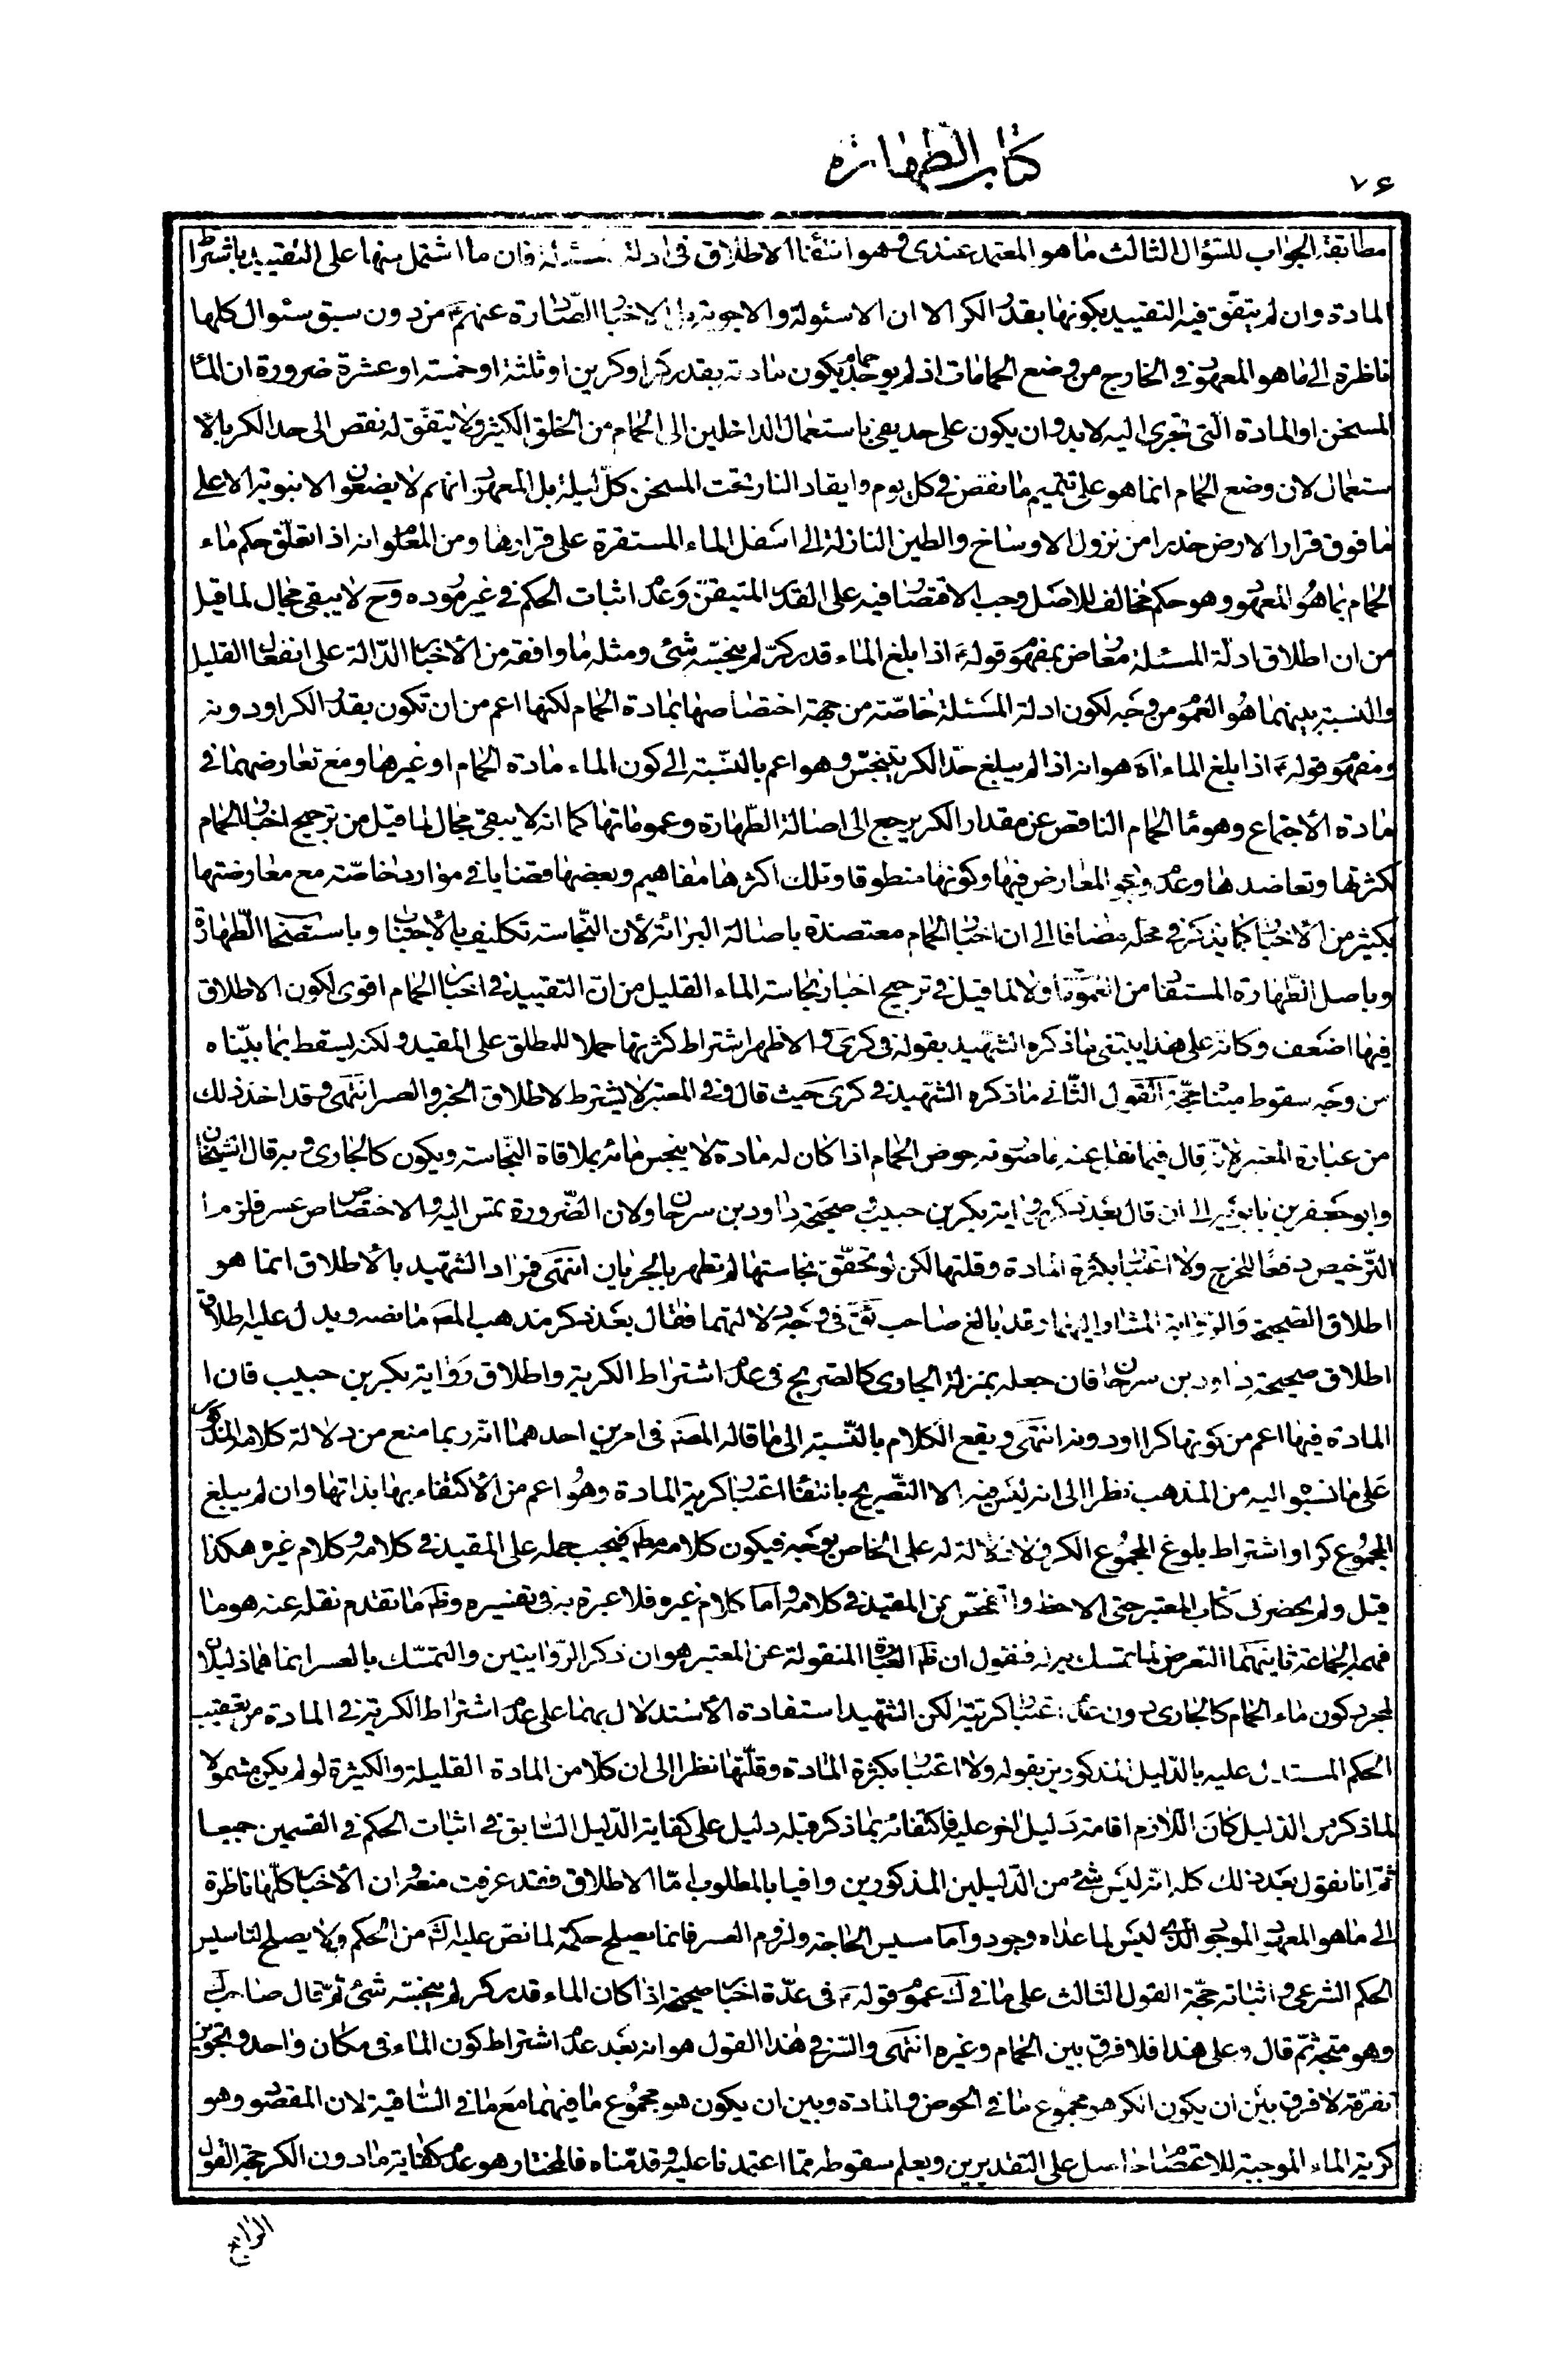 ٧۶
كتاب الطهارة
مطابقة الجواب للسؤال الثالث ما هو المعتمد عندى و هو انتفاء الاطلاق فى ادلة المسئلة فان ما اشتمل منها على التقييد باشتراط
المادة وان لم يتفق فيه التقييد بكونها بقدر الكر الا ان الاسئولة والاجوبة بل الاخبار الصادرة عنهم ع من دون سبق سئوال كلها
ناظرة الى ما هو المعهود فى الخارج من وضع الحمامات اذ لم يوجد حمام يكون مادته بقدر كر او كرين او ثلثة او خمسة او عشرة ضرورة ان الماء
المسخن او المادة التى تجرى اليه لابد وان يكون على حد يفى باستعمال الداخلين الى الحمام من الخلق الكثير ولا يتفق له نقص الى حد الكر بالا
ستعمال لان وضع الحمام انما هو على تتميم ما نقص فى كل يوم وايقاد النار تحت المسخن كل ليلة بل المعهود انهم لا يضعون الانبوبة الا على
ما فوق قرار الارض حذرا من نزول الاوساخ والطين النازلة الى اسفل الماء المستقرة على قرارها ومن المعلوم انه اذا تعلق حكم ماء
الحمام بما هو المعهود وهو حكم مخالف للاصل وجب الاقتصار فيه على القدر المتيقن وعدم اثبات الحكم فى غير مورده وح لا يبقى مجال لما قيل
من ان اطلاق ادلة المسئلة معارض بمفهوم قوله ع اذا بلغ الماء قدر كر لم ينجسه شئ ومثله ما وافقه من الأخبار الدالة على انفعال القليل
والنسبة بينهما هو العموم من وجه لكون ادلة المسئلة خاصة من جهة اختصاصها بمادة الحمام لكنها اعم من ان تكون بقدر الكر او دونه
ومفهوم قوله ع اذا بلغ الماء اه هو انه اذا لم يبلغ حد الكر يتنجس وهو اعم بالنسبة الى كون الماء مادة الحمام او غيرها ومع تعارضهما فى
مادة الاجتماع وهو ماء الحمام الناقص عن مقدار الكر يرجع الى اصالة الطهارة وعموماتها كما انه لا يبقى مجال لما قيل من ترجيح اخبار الحمام
لكثرتها وتعاضدها وعدم وجود المعارض فيها وكونها منطوقا وتلك اكثرها مفاهيم وبعضها قضايا فى موارد خاصة مع معارضتها
بكثير من الاخبار كما يذكر فى محله مضافا الى ان اخبار الحمام معتضدة باصالة البرائة لأن النجاسة تكليف بالاجتناب و باستصحاب الطهارة
وباصل الطهارة المستفاد من العمومات ولا لما قيل فى ترجيح اخبار نجاسة الماء القليل من ان التقييد فى اخبار الحمام اقوى لكون الاطلاق
فيها اضعف وكانه على هذا يبتنى ما ذكره الشهيد بقوله فى كرى والاظهر اشتراط كثرتها حملا للمطلق على المقيد ولكنه يسقط بما بيناه
من وجه سقوط حجة القول الثانى ما ذكره الشهيد فى كرى حيث قال وفى المعتبر لا يشترط لاطلاق الخبر والعسر انتهى وقد اخذ ذلك
من عبارة المعتبر لانه قال فيما نقل عنه ما صورته حوض الحمام اذا كان له مادة لا ينجس مائه بملاقاة النجاسة ويكون كالجارى وبه قال الشيخان
وابو جعفر بن بابويه الى ان قال بعد ذكر رواية بكر بن حبيب صحيحة داود بن سرحان ولان الضرورة تمس اليه والاختصاص عسر فلزم
الترخيص دفعا للحرج ولا اعتبار بكثرة المادة وقلتها لكن لو تحقق نجاستها لم تطهر بالجريان انتهى فمراد الشهيد بالأطلاق انما هو
اطلاق الصحيحة والرواية المشار اليهما وقد بالغ صاحب ئق فى وجه دلالتهما فقال بعد ذكر مذهب المص ما نصه ويدل عليه اطلاق
اطلاق صحيحة داود بن سرحان فان جعله بمنزلة الجارى كالصريح فى عدم اشتراط الكرية واطلاق رواية بكر بن حبيب فان
المادة فيها اعم من كونها كرا او دونه انتهى ويقع الكلام بالنسبة الى ما قاله المص فى امرين احدهما انه ربما منع من دلالة كلامه المذكور
على ما نسبوا اليه من المذهب نظرا الى انه ليس فيه الا التصريح بانتفاء اعتبار كرية المادة وهو اعم من الأكتفاء بها بذاتها وان لم يبلغ
المجموع كرا او اشتراط بلوغ المجموع الكر ولا دلالة له على الخاص بوجه فيكون كلامه مط فيجب حمله على المقيد فى كلامه وكلام غيره هكذا
قيل ولم يحضرنى كتاب المعتبر حتى الاحظ واتفحص عن المقيد فى كلامه واما كلام غيره فلا عبرة به فى تفسيره وظ ما تقدم نقله عنه هو ما
فهمه الجماعة ثانيهما التعرض لما تمسك به له فنقول ان ظ العبارة المنقولة عن المعتبر هو ان ذكر الروايتين والتمسك بالعسر انما هما دليلان
لمجرد كون ماء الحمام كالجارى دون عدم اعتبار كريته لكن الشهيد استفادة الأستدلال بهما على عدم اشتراط الكرية فى المادة من تعقيب
الحكم المستدل عليه بالدليل المذكورين بقوله ولا اعتبار بكثرة المادة وقلتها نظرا الى ان كلا من المادة القليلة والكثيرة لو لم يكن مشمولا
لما ذكر من الدليل كان اللازم اقامة دليل اخر عليه فاكتفائه بما ذكر قبله دليل على كفاية الدليل السابق فى اثبات الحكم فى القسمين جميعا
ثم انا نقول بعد ذلك كله انه ليس شئ من الدليلين المذكورين وافيا بالمطلوب اما الاطلاق فقد عرفت منعه وان الأخبار كلها ناظرة
الى ما هو المعهود الموجود الذى ليس لما عداه وجود واما مسيس الحاجة ولزوم العسر فانما يصلح حكمة لما نص عليه الشارع من الحكم ولا يصلح لتاسيس
الحكم الشرعى واثباته حجة القول الثالث على ما فى ك عموم قوله ع فى عدة اخبار صحيحة اذا كان الماء قدر كر لم ينجسه شئ ثم قال صاحب ك
وهو متجه ثم قال وعلى هذا فلا فرق بين الحمام وغيره انتهى والسر فى هذا القول هو انه بعد عدم اشتراط كون الماء فى مكان واحد وتجويز
تفرقه لا فرق بين ان يكون الكر هو مجموع ما فى الحوض والمادة وبين ان يكون هو مجموع ما فيهما مع ما فى الساقية لان المقصود وهو
كرية الماء الموجبة للاعتصام حاصل على التقديرين ويعلم سقوطه مما اعتمدنا عليه وقدمناه فالمختار هو عدم كفاية ما دون الكر حجة القول
الرابع